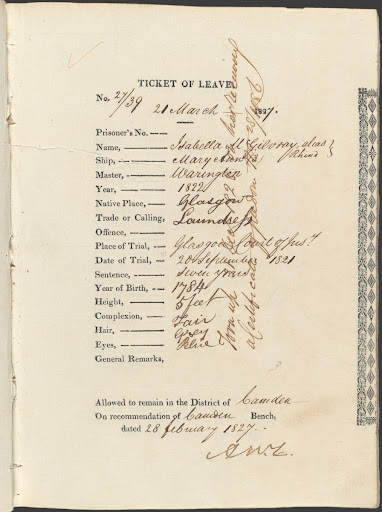 TICKET OF LEAVE
No. 27/39 21 March 1827.
Prisoner's No. —
Name, — Isabella Mc Gilvray alias
Ship, — Mary Ann (3)
Master, — Warington
Year, — 1822
Native Place, — Glasgow
Trade or Calling, Laundress
Offence, —
Place of Trial, — Glasgow Court of Just
Date of Trial, — 20 September 1821
Sentence, — Seven years
Year of Birth, — 1784
Height, — 5 feet
Complexion, — Fair
Hair, — Grey
Eyes, — Blue
General Remarks,
Allowed to remain in the District of Camden
On recommendation of Camden Bench,
dated 28 february 1827.
Torn up her
a Certificate of freedom